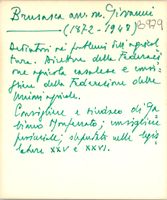 Brusasca avv. on. Giovanni
(1872-1948) B979
Dedicatosi ai problemi dell'agricol-
tura. Direttore della Federazio-
ne agricola casalese e consi-
gliere della Federazione delle
Unioni agricole.
Consigliere e sindaco di Ga-
biano Monferrato; consigliere
provinciale; deputato nelle legi-
slature XXV e XXVI.